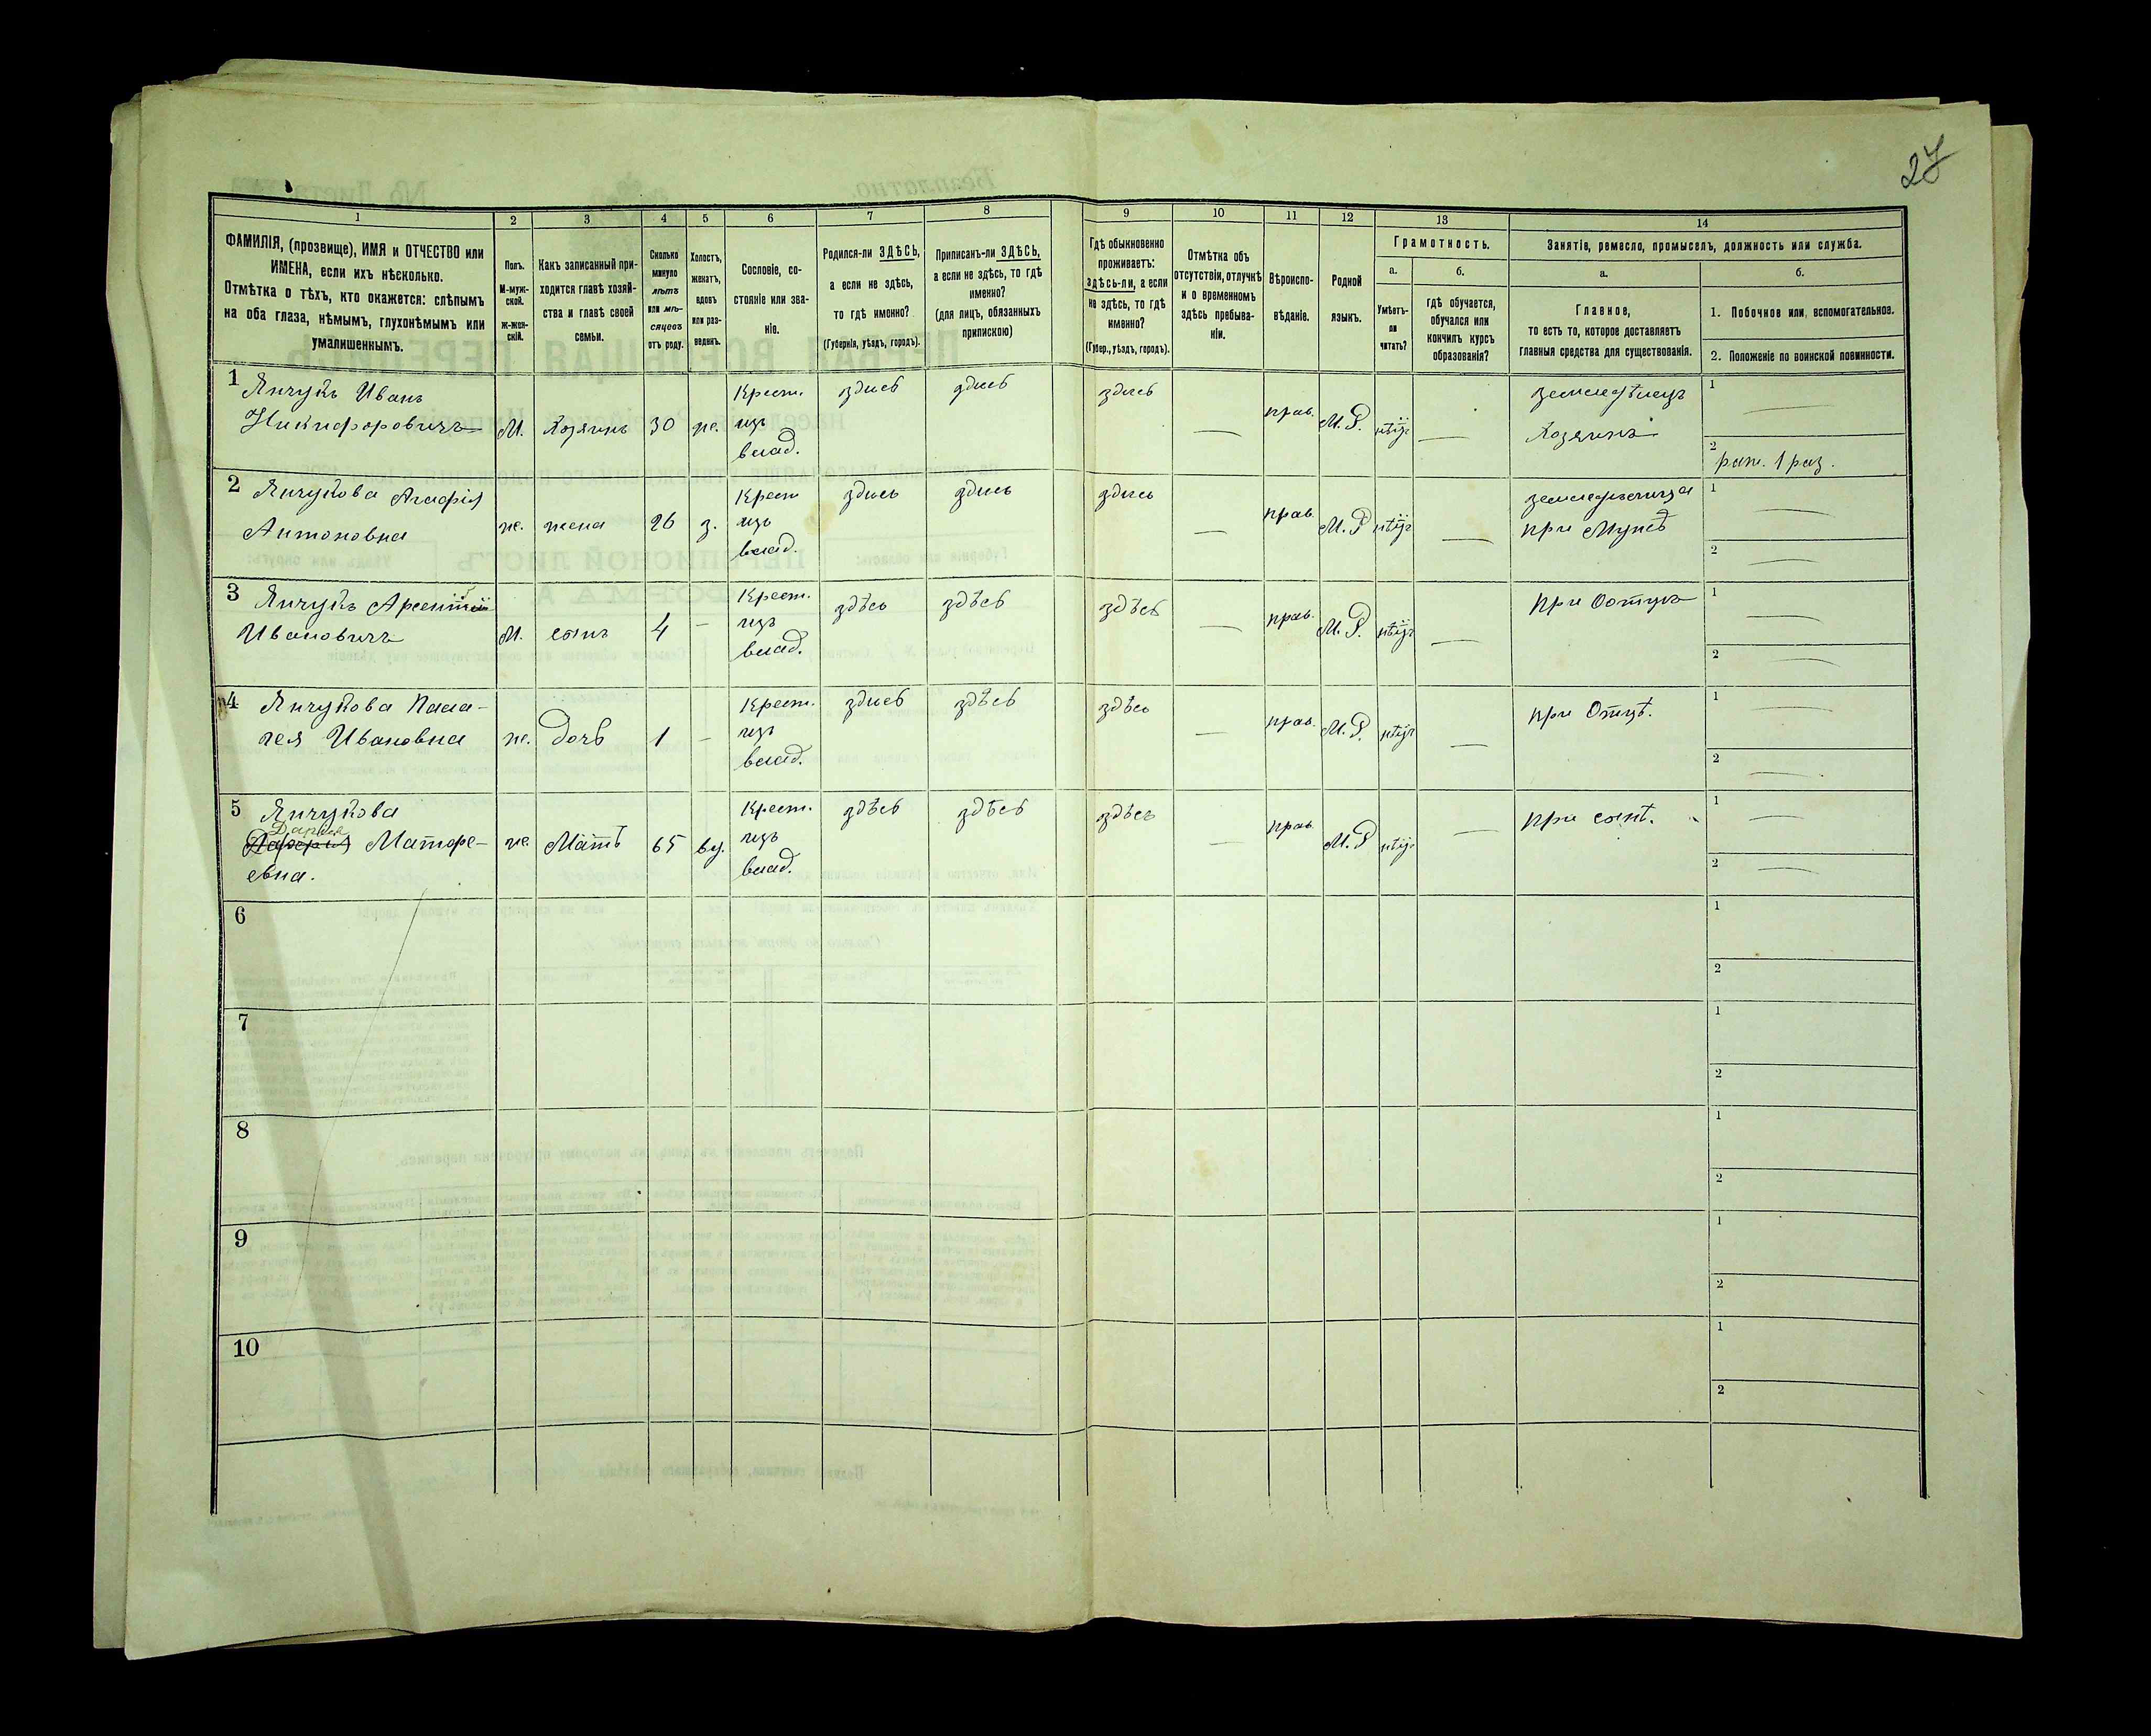 27
1 2 3 4 5 6 7 8 9 10 11 12 13 14
ФАМИЛІЯ, (прозвище), ИМЯ и ОТЧЕСТВО или
ИМЕНА, если ихъ нѣсколько.
Отмѣтка о тѣхъ, кто окажется: слѣпымъ
на оба глаза, нѣмымъ, глухонѣмымъ или
умалишеннымъ.
Полъ.
М-муж-
ской.
ж-жен-
скій.
Какъ записанный при-
ходится главѣ хозяй-
ства и главѣ своей
семьи.
Сколько
минуло
лѣтъ
или мѣ-
сяцевъ
отъ роду.
Холостъ,
женатъ,
вдовъ
или раз-
веденъ.
Сословіе, со-
стояніе или зва-
ніе.
Родился-ли ЗДѢСЬ,
а если не здѣсь,
то гдѣ именно?
(Губернія, уѣздъ, городъ).
Приписанъ-ли ЗДѢСЬ,
а если не здѣсь, то гдѣ
именно?
(для лицъ, обязанныхъ
припискою)
Гдѣ обыкновенно
проживаетъ:
здѣсь-ли, а если
не здѣсь, то гдѣ
именно?
(Губер., уѣздъ, городъ).
Отмѣтка объ
отсутствіи, отлучкѣ
и о временномъ
здѣсь пребыва-
ніи.
Вѣроиспо-
вѣданіе.
Родной
языкъ.
Грамотность.
а.
Умѣетъ-
ли
читать?
б.
гдѣ обучается,
обучался или
кончилъ курсъ
образованія?
Занятіе, ремесло, промыселъ, должность или служба.
а.
Главное,
то есть то, которое доставляетъ
главныя средства для существованія.
б.
1. Побочное или вспомогательное.
2. Положеніе по воинской повинности.
1 Янчукъ Иванъ
Никифоровичъ М. Хозяинъ 30 же. Крест. изъ влад. здись здись здись — прав. М. Р. нѣтъ — земледѣлецъ Хозяинъ 1 — 2 рат. 1 раз.
2 Янчукова Агафія
Антоновна же. жена 26 з. Крест изъ влад. здись здись здись — прав. М. Р нѣтъ — при Мужѣ 1 — 2 —
3 Янчукъ Арсентій
Ивановичъ М. сынъ 4 — Крест. изъ влад. здѣсь здѣсь здѣсь — прав. М. Р. нѣтъ — при 1 — 2 —
4 Янчукова Пала-
гея Ивановна же. дочь 1 — Крест. изъ влад. здись здѣсь здѣсь — прав. М. Р. нѣтъ — при Отцѣ. 1 — 2 —
5 Янчукова
Дарія Матфе-
евна. же. Мать 65 ву. Крест. изъ влад. здѣсь здѣсь здѣсь — прав. М. Р нѣтъ — при сынѣ. 1 — 2 —
6 1 2
7 1 2
8 1 2
9 1 2
10 1 2